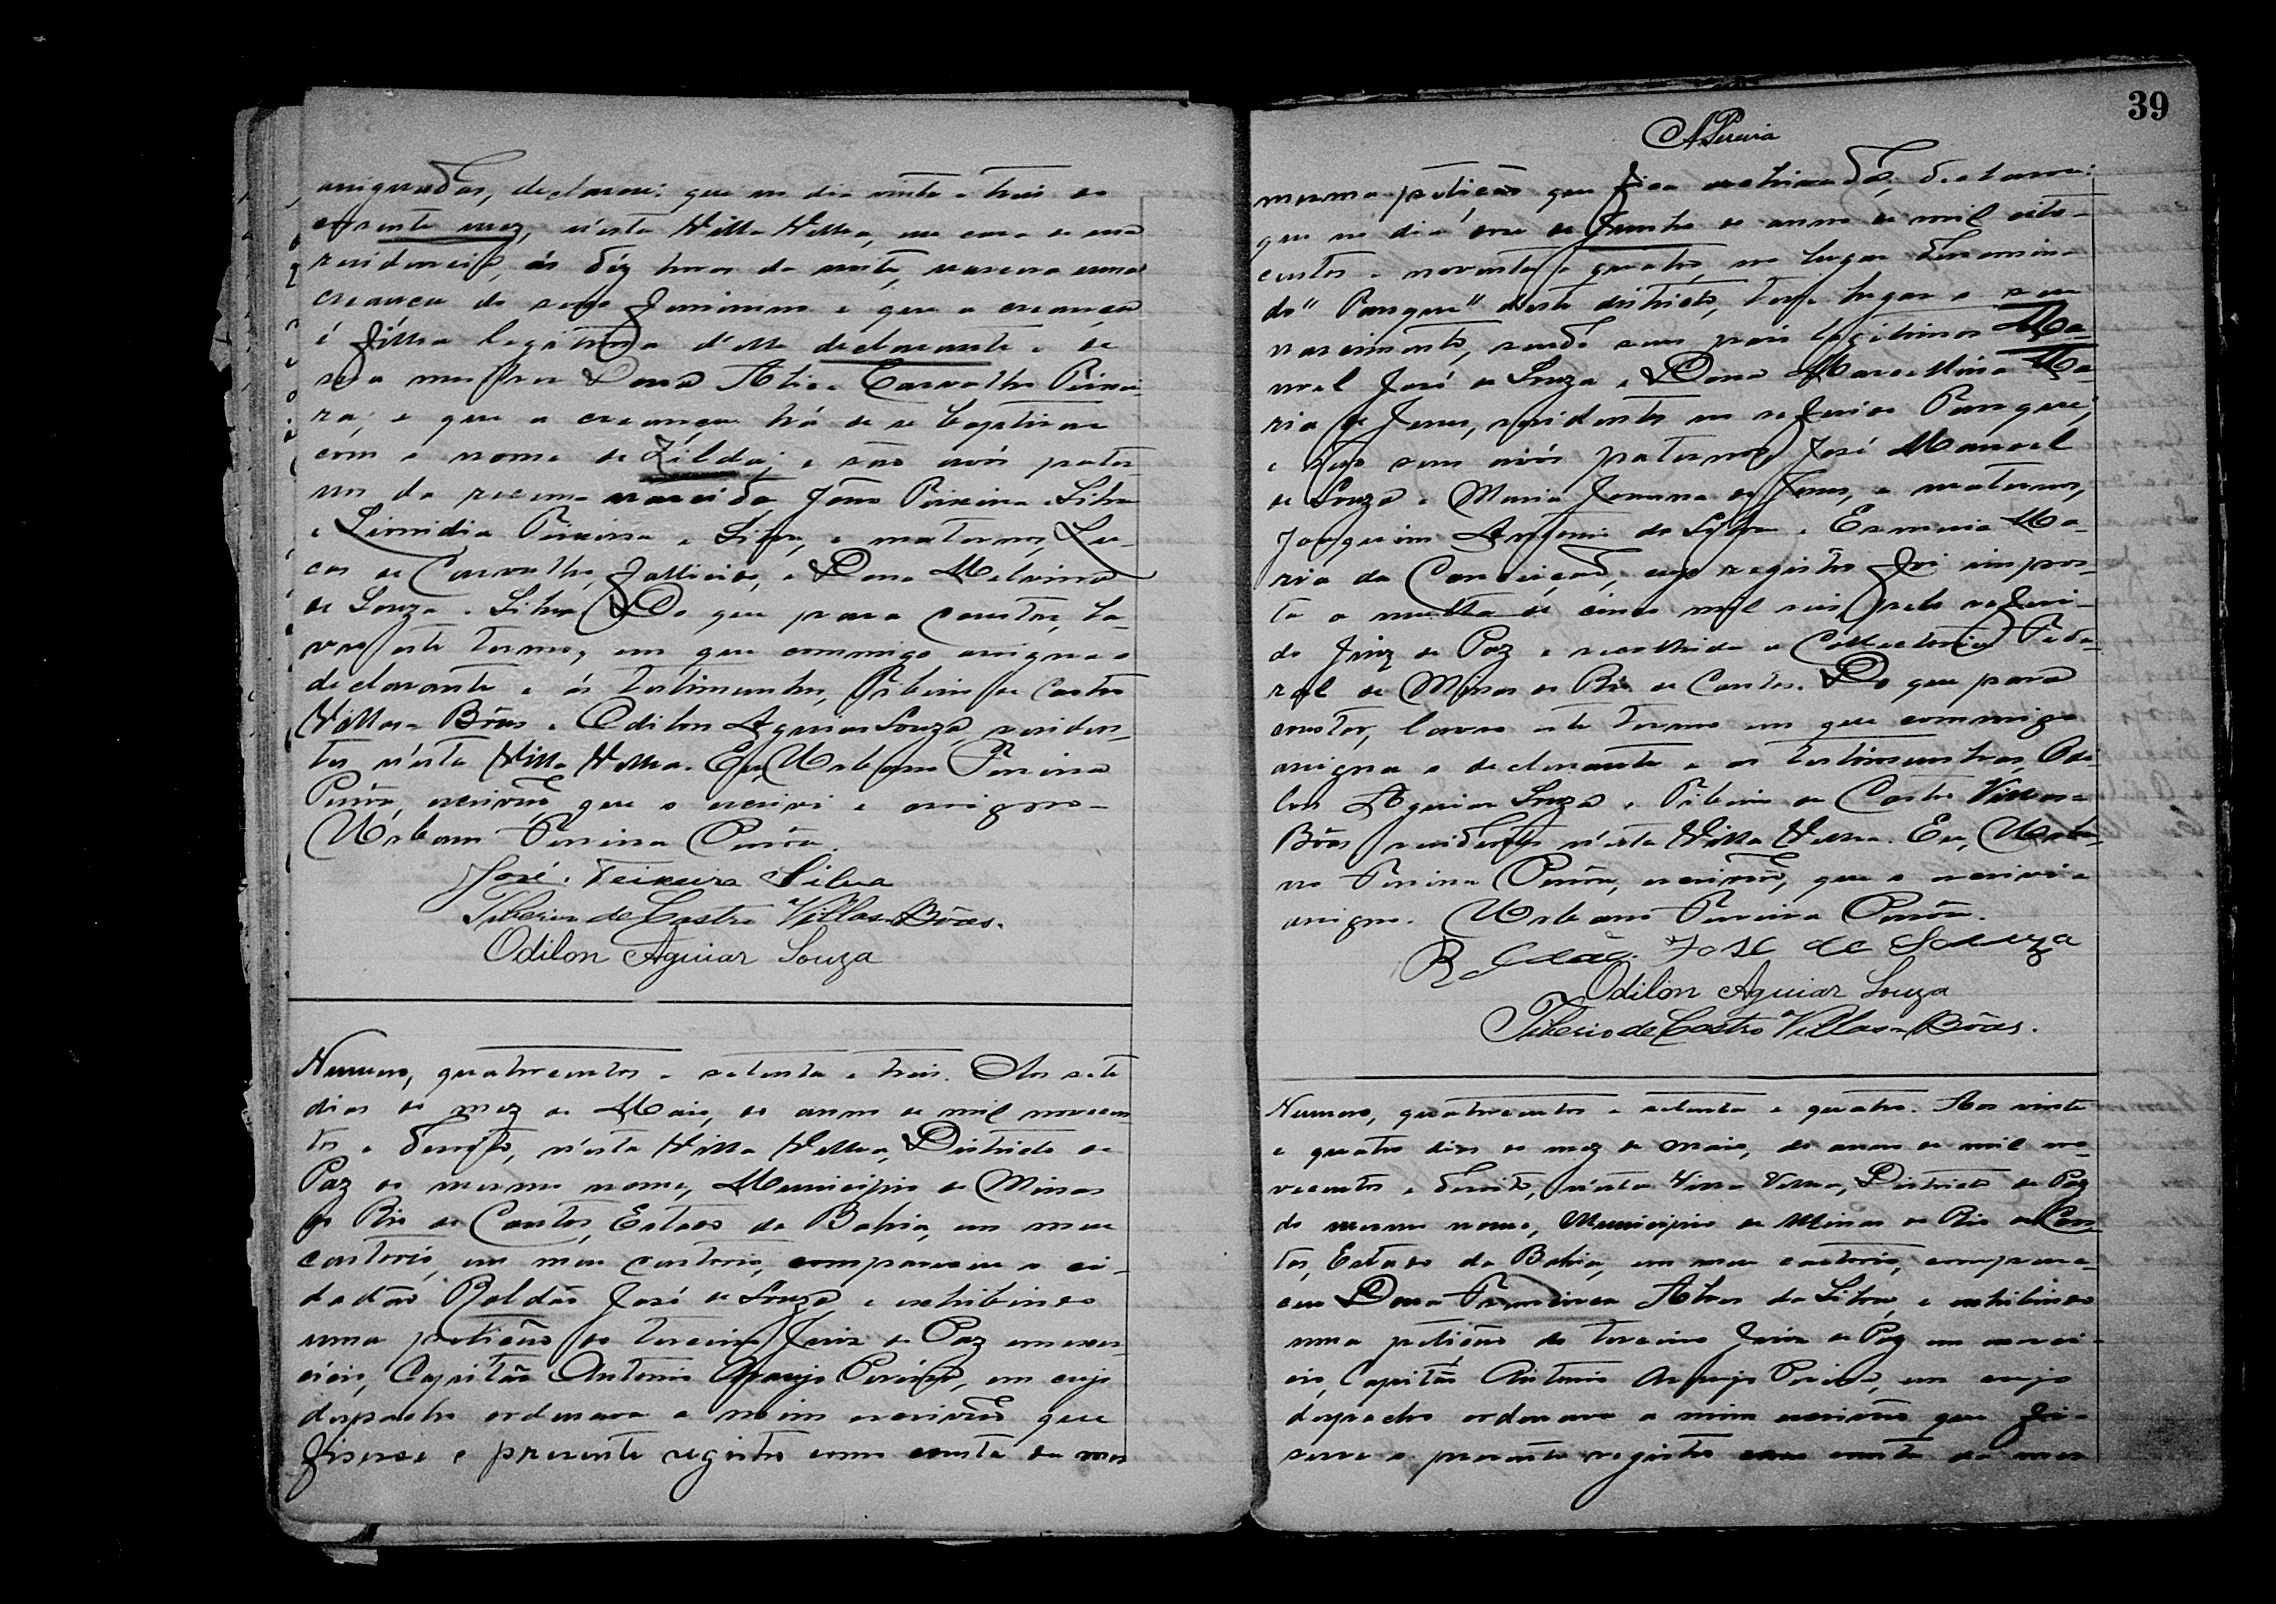 assignadas, declarou: que no dia vinte e tres do
corrente mez, n'esta Villa Velha, em casa de sua
residencia, ás déz horas da noite, nasceu uma
creança do sexo feminino e que a creança
é filha legitima d'elle declarante e de
sua mulher Dona Alice Carvalho Teixei-
ra; e que a creança há de se baptisar
com o nome de Zilda; e são avós pater-
nos da recem nascida João Teixeira e Silva
e Leonidia Teixeira e Silva, e maternos, Lu-
cas de Carvalho, fallecido, e Dona
de Souza e Silva. Do que para constar, la-
vro este termo, em que commigo assigna o
declarante e ás testimunhas, Tiberio de Castro
Villas-Bôas e Odilon Aguiar Souza, residen-
tes n'esta Villa Velha. Eu, Urbano Pereira
escrivão, que o escrevi e assigno-
Urbano Pereira
José Teixeira Silva
Tiberio de Castro Villas-Bôas.
Odilon Aguiar Souza
Numero, quatrocentos e setenta e tres. Aos sete
dias do mez de Maio, do anno de mil novecen-
tos e dezoito, n'esta Villa Velha, Districto de
Paz do mesmo nome, Municipio de Minas
do Rio de Contas, Estado da Bahia, em meu
cartorio, em meu cartorio, compareceu o ci-
dadão Roldão José de Souza, e exhibindo
uma petição do terceiro Juiz de Paz em exer-
cicio, Capitão Antonio Araujo Pereira, em cujo
despacho ordenava a mim escrivão que
fisesse o presente registro como consta da mes
39
APereira
mesma petição que fica archivada, declarou:
que no dia onze de Junho do anno de mil oito-
centos e noventa e quatro, no lugar denomina-
do "Parque" deste districto, teve lugar o seu
nascimento, sendo seus pais legitimos Ma-
noel José de Souza e Dona Marcellina Ma-
ria de Jesus, residentes no referido Parque;
e são seus avós paternos José Manoel
de Souza e Maria Joanna de Jesus, e maternos,
Joaquim Antonio da Silva e Ma-
ria da Conceição, cujo registro foi impos-
ta a multa de cinco mil reis pelo referi-
do Juiz de Paz e recolhida a Collectoria Fede-
ral de Minas do Rio de Contas. Do que para
constar, lavro este termo em que commigo
assigna o declarante e as testimunhas, Odi-
lon Aguiar Souza e Tiberio de Castro Villas-
Bôas, residentes n'esta Villa Velha. Eu, Urba-
no Pereira escrivão, que o escrevi e
assigno. Urbano Pereira
Roldão José de Souza
Odilon Aguiar Souza
Tiberio de Castro Villas-Bôas.
Numero, quatrocentos e setenta e quatro. Aos vinte
e quatro dias do mez de Maio, do anno de mil no-
vecentos e dezoito, n'esta Villa Velha, Districto de Paz
do mesmo nome, Municipio de Minas do Rio de Con-
tas, Estado da Bahia, em meu cartorio, compare-
ceu Dona Francisca Alves da Silva, e exhibindo
uma petição do terceiro Juiz de Paz em exerci-
cio, Capitão Antonio Araujo Pereira, em cujo
despacho ordenava a mim escrivão que fi-
sesse o presente registro como consta da mes